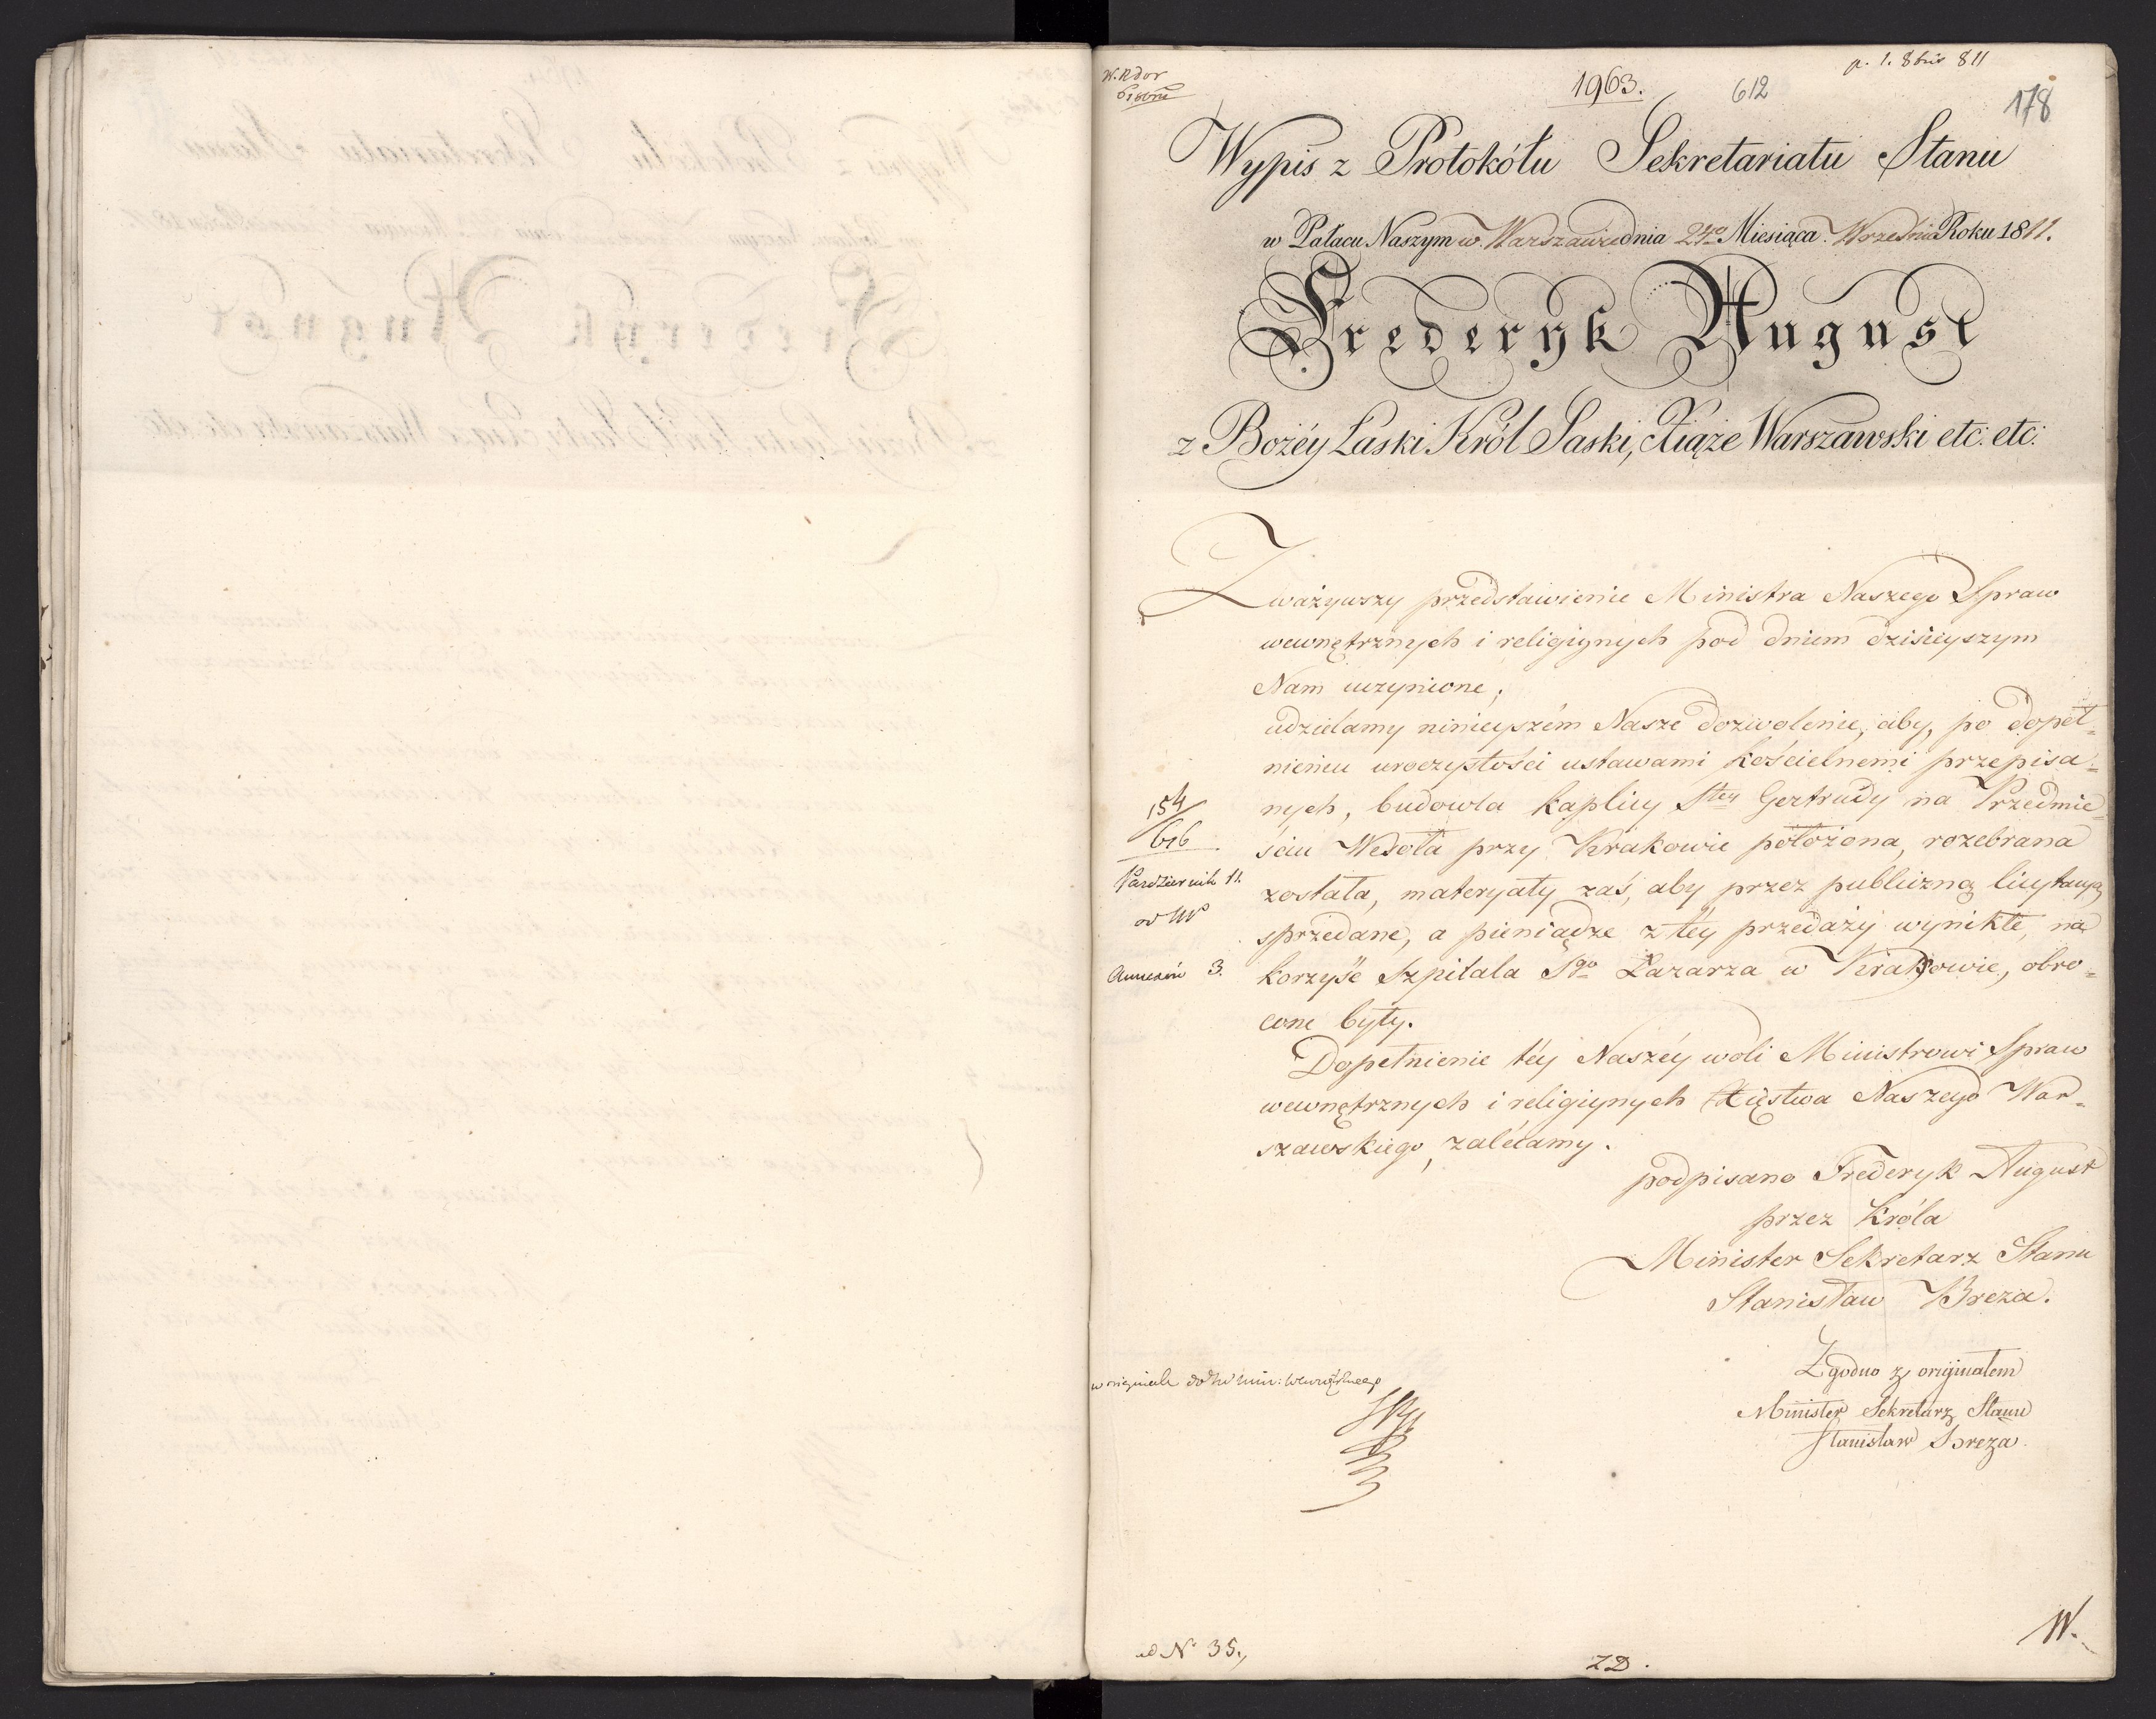 p. 1. 8bris 811
1963.
612
178
Wypis z Protokółu Sekretariatu Stanu
w Pałacu Naszym w Warszawie dnia 24go Miesiąca Września Roku 1811.
Frederyk August
z Bożéy Łaski Król Saski, Xiąże Warszawski etc: etc:
Zważywszy przedstawienie Ministra Naszego Spraw
wewnętrznych i religiynych pod dniem dzisieyszym
Nam uczynione;
udzielamy ninieyszém Nasze dozwolenie, aby, po dopeł=
nieniu uroczystości ustawami kościelnemi przepisa=
nych, budowla kaplicy Stey Gertrudy na Przedmie=
ściu Wesoła przy Krakowie położona, rozebrana
została, materyały zaś, aby przez publiczną licytacyą
sprzedane, a pieniądze z téy przedaży wynikłe, na
korzyść Szpitala Sgo Łazarza w Krakowie, obró=
cone były.
Dopełnienie téy Naszéy woli Ministrowi Spraw
wewnętrznych i religiynych Xięstwa Naszego War=
szawskiego, zalécamy.
podpisano Frederyk August
przez Króla
Minister Sekretarz Stanu
Stanisław Breza.
Zgodno z originałem
Minister Sekretarz Stanu
Stanisław Breza
154
616
Październik 11.
3.
ad No 35.,
ZD.
W.